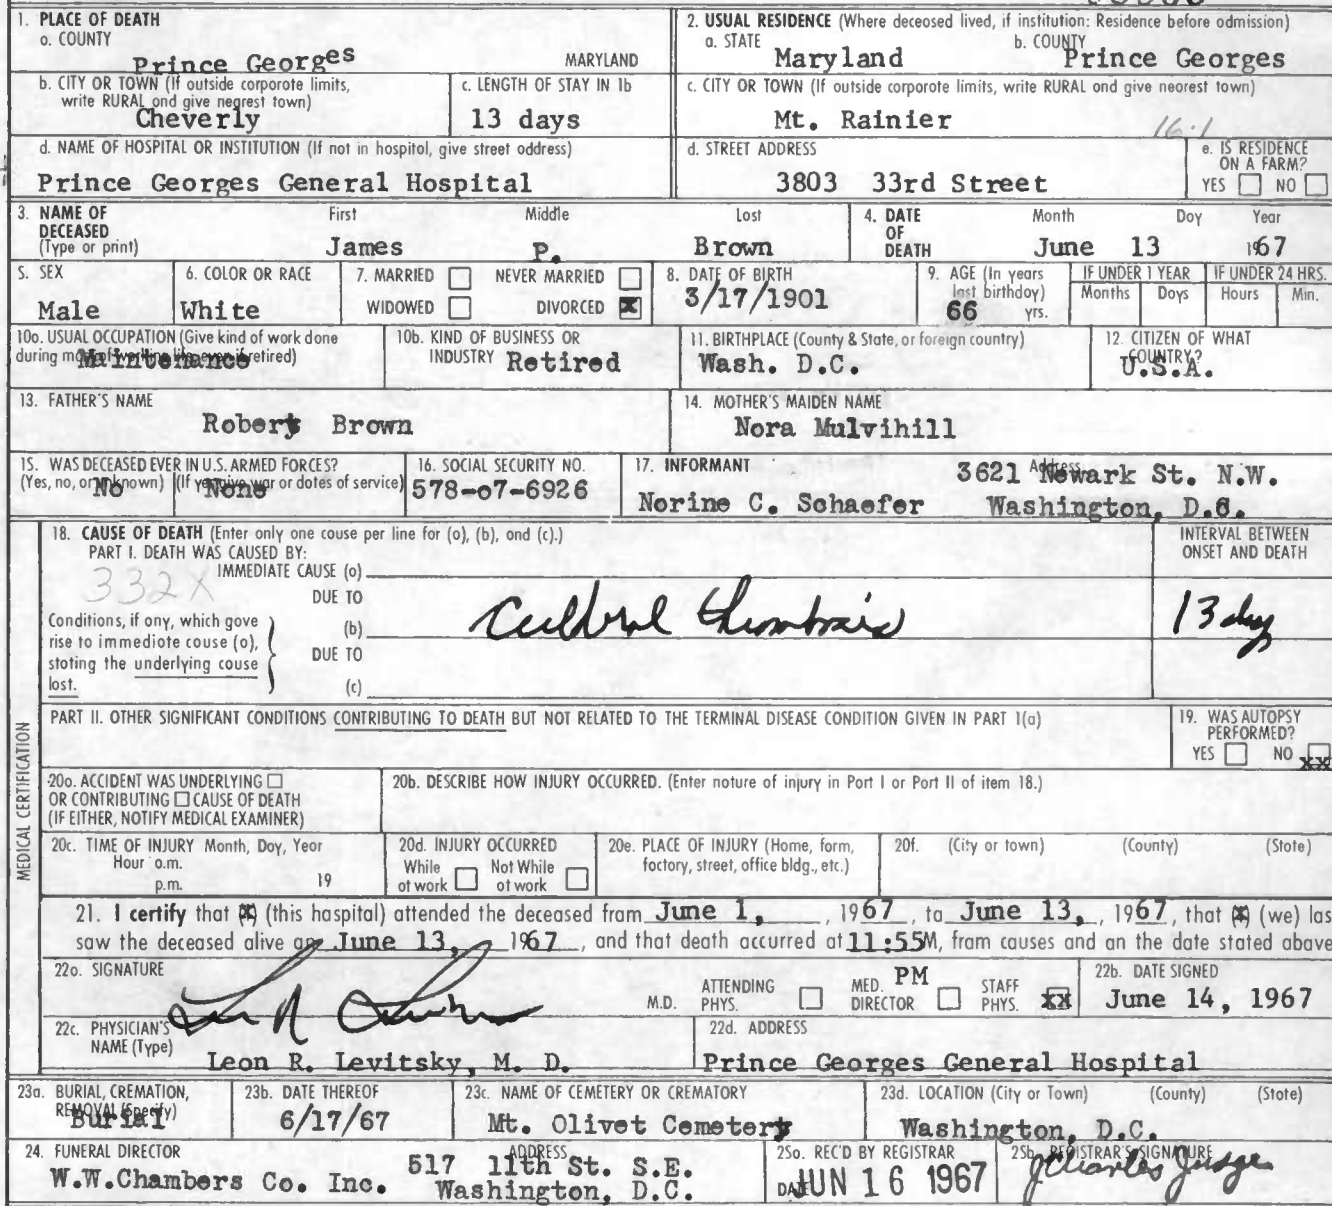 1. PLACE OF DEATH
a. COUNTY
Prince Georges MARYLAND
2. USUAL RESIDENCE (Where deceased lived, if institution: Residence before admission)
a. STATE b. COUNTY
Maryland Prince Georges
b. CITY OR TOWN (If outside corporate limits,
write RURAL and give nearest town)
Cheverly
c. LENGTH OF STAY IN 1b
13 days
c. CITY OR TOWN (If outside corporate limits, write RURAL and give nearest town)
Mt. Rainier
16.1
d. NAME OF HOSPITAL OR INSTITUTION (If not in hospital, give street address)
Prince Georges General Hospital
d. STREET ADDRESS
3803 33rd Street
e. IS RESIDENCE
ON A FARM?
YES NO
3. NAME OF
DECEASED
(Type or print)
First Middle Last
James P. Brown
4. DATE
OF
DEATH
Month Day Year
June 13 1967
5. SEX
Male
6. COLOR OR RACE
White
7. MARRIED NEVER MARRIED
WIDOWED DIVORCED X
8. DATE OF BIRTH
3/17/1901
9. AGE (In years
last birthday)
66 yrs.
IF UNDER 1 YEAR
Months Days
IF UNDER 24 HRS.
Hours Min.
10a. USUAL OCCUPATION (Give kind of work done
during most of working life, even if retired)
Maintenance
10b. KIND OF BUSINESS OR
INDUSTRY Retired
11. BIRTHPLACE (County & State, or foreign country)
Wash. D.C.
12. CITIZEN OF WHAT
COUNTRY?
U.S.A.
13. FATHER'S NAME
Robert Brown
14. MOTHER'S MAIDEN NAME
Nora Mulvihill
15. WAS DECEASED EVER IN U.S. ARMED FORCES?
(Yes, no, or unknown) (If yes give war or dates of service)
No None
16. SOCIAL SECURITY NO.
578-07-6926
17. INFORMANT Address
Norine C. Schaefer
3621 Newark St. N.W.
Washington, D.C.
18. CAUSE OF DEATH (Enter only one cause per line for (a), (b), and (c).)
PART I. DEATH WAS CAUSED BY:
IMMEDIATE CAUSE (a)
332X
DUE TO
Conditions, if any, which gave
rise to immediate cause (a),
stating the underlying cause
last.
(b) Cerebral thrombosis
DUE TO
(c)
INTERVAL BETWEEN
ONSET AND DEATH
13 days
PART II. OTHER SIGNIFICANT CONDITIONS CONTRIBUTING TO DEATH BUT NOT RELATED TO THE TERMINAL DISEASE CONDITION GIVEN IN PART I(a)
19. WAS AUTOPSY
PERFORMED?
YES NO XX
MEDICAL CERTIFICATION
20a. ACCIDENT WAS UNDERLYING
OR CONTRIBUTING CAUSE OF DEATH
(IF EITHER, NOTIFY MEDICAL EXAMINER)
20b. DESCRIBE HOW INJURY OCCURRED. (Enter nature of injury in Part I or Part II of item 18.)
20c. TIME OF INJURY Month, Day, Year
Hour a.m.
p.m. 19
20d. INJURY OCCURRED
While Not While
at work at work
20e. PLACE OF INJURY (Home, farm,
factory, street, office bldg., etc.)
20f. (City or town) (County) (State)
21. I certify that (X) (this hospital) attended the deceased from June 1, , 1967, to June 13, , 1967, that (X) (we) las
saw the deceased alive on June 13, 1967, and that death occurred at 11:55M, from causes and on the date stated above
PM
22a. SIGNATURE
M.D. ATTENDING
PHYS. MED.
DIRECTOR STAFF
PHYS. XX
22b. DATE SIGNED
June 14, 1967
22c. PHYSICIAN'S
NAME (Type)
Leon R. Levitsky, M. D.
22d. ADDRESS
Prince Georges General Hospital
23a. BURIAL, CREMATION,
REMOVAL (Specify)
Burial
23b. DATE THEREOF
6/17/67
23c. NAME OF CEMETERY OR CREMATORY
Mt. Olivet Cemetery
23d. LOCATION (City or Town) (County) (State)
Washington, D.C.
24. FUNERAL DIRECTOR ADDRESS
W.W.Chambers Co. Inc.
517 11th St. S.E.
Washington, D.C.
25a. REC'D BY REGISTRAR
DATE JUN 16 1967
25b. REGISTRAR'S SIGNATURE
J Charles Judge